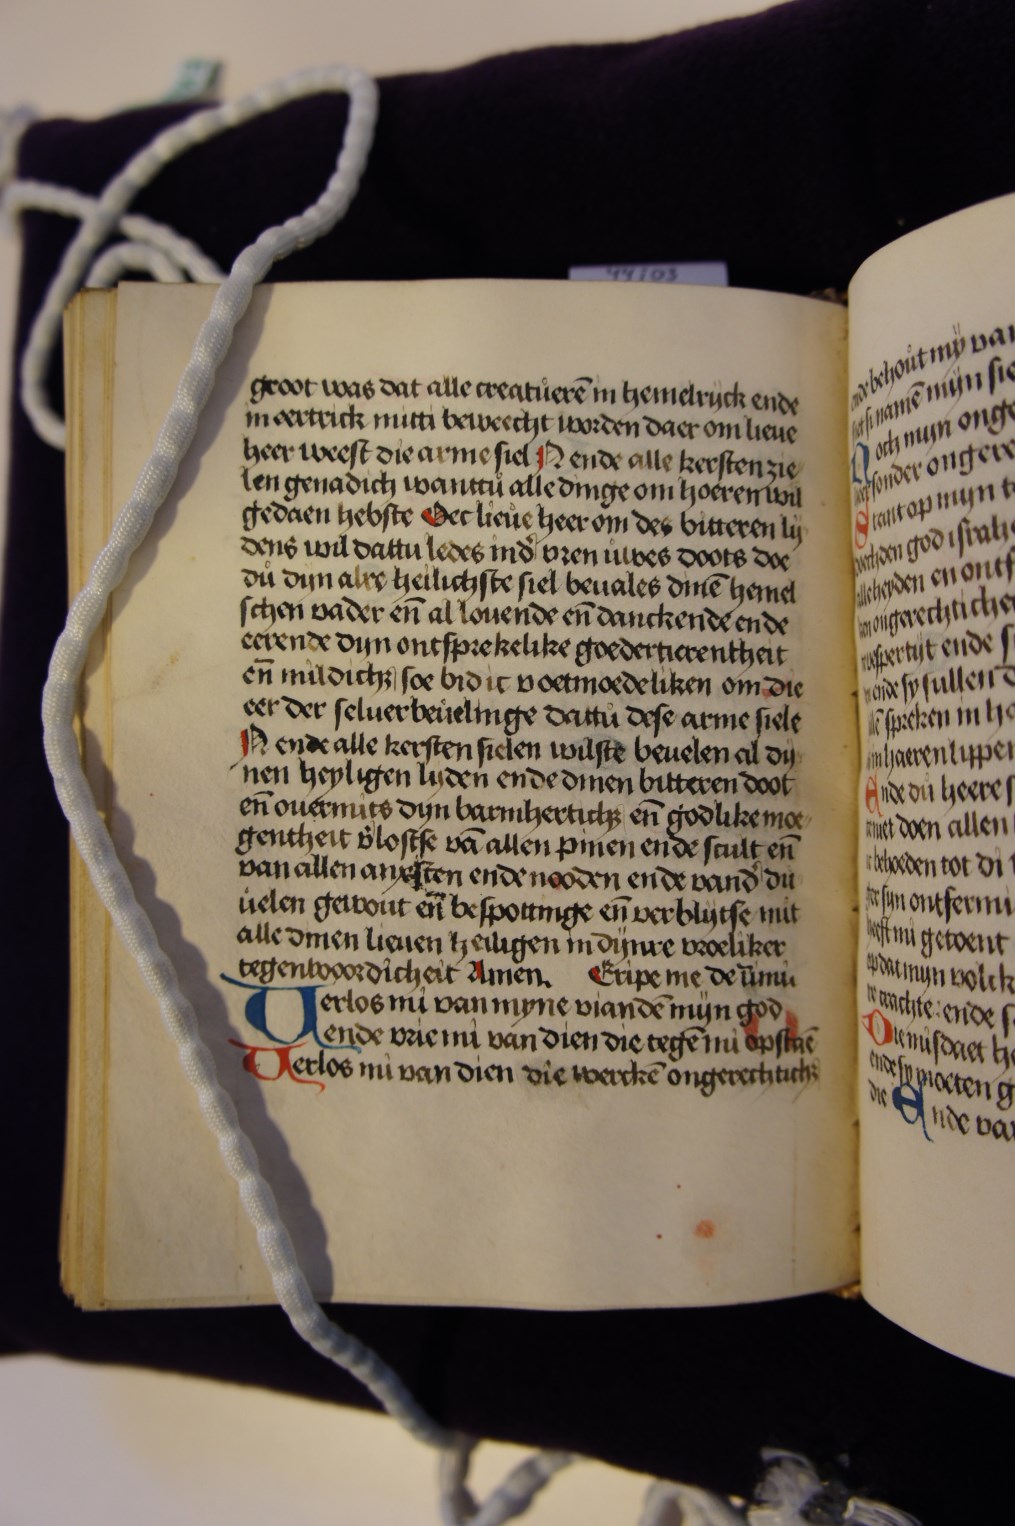 44103
groot was dat alle creatuerē in hemelrijck ende
in oertrick mitti beweecht worden daer om lieue
heer weest die arme siel N ende alle kersten zie
len genadich wanttu alle dinge om hoeren wil
gedaen hebste Oec lieue heer om des bitteren lij
dens wil dattu ledes ind vren uwes doots doe
du dijn alre heilichste siel beuales dinē hemel
schen vader en̄ al louende en̄ danckende ende
eerende dijn ontsprekelike goedertierentheit
en̄ mildichz soe bid ic voetmoedeliken om die
eer der seluer beuelinge dattu dese arme siele
N ende alle kersten sielen wilste beuelen al dij
nen heyligen lijden ende dinen bitteren doot
en̄ ouermits dijn barmhertichz en̄ godlike moe
gentheit v̄loste vā allen pinen ende scult en̄
van allen anxsten ende nooden ende vand du
uelen gewout en̄ bespottinge en̄ verblijtse mit
alle dinen lieuen heiligen in dijnre vroeliker
tegenwoordicheit Amen. Eripe me de inimi
Uerlos mi van myne viandē mijn god
ende vrie mi van dien die tegē mi opstaē
Uerlos mi van dien die werckē ongerechtichz
ende behout mij van
namē mijn sie
Noch mijn onge
sonder ongere
Staet op mijn
god israhe
alle heyden en ontf
ongerechtiche
vespertijt ende s
ende sy sullen
spreken in h
in haeren lippen
Ende du heere s
niet doen allen
behoeden tot di
sijn ontfermi
heeft mi getoent
op dat mijn volck
crachte: ende s
Die mi
ende sy moeten g
die Ende va